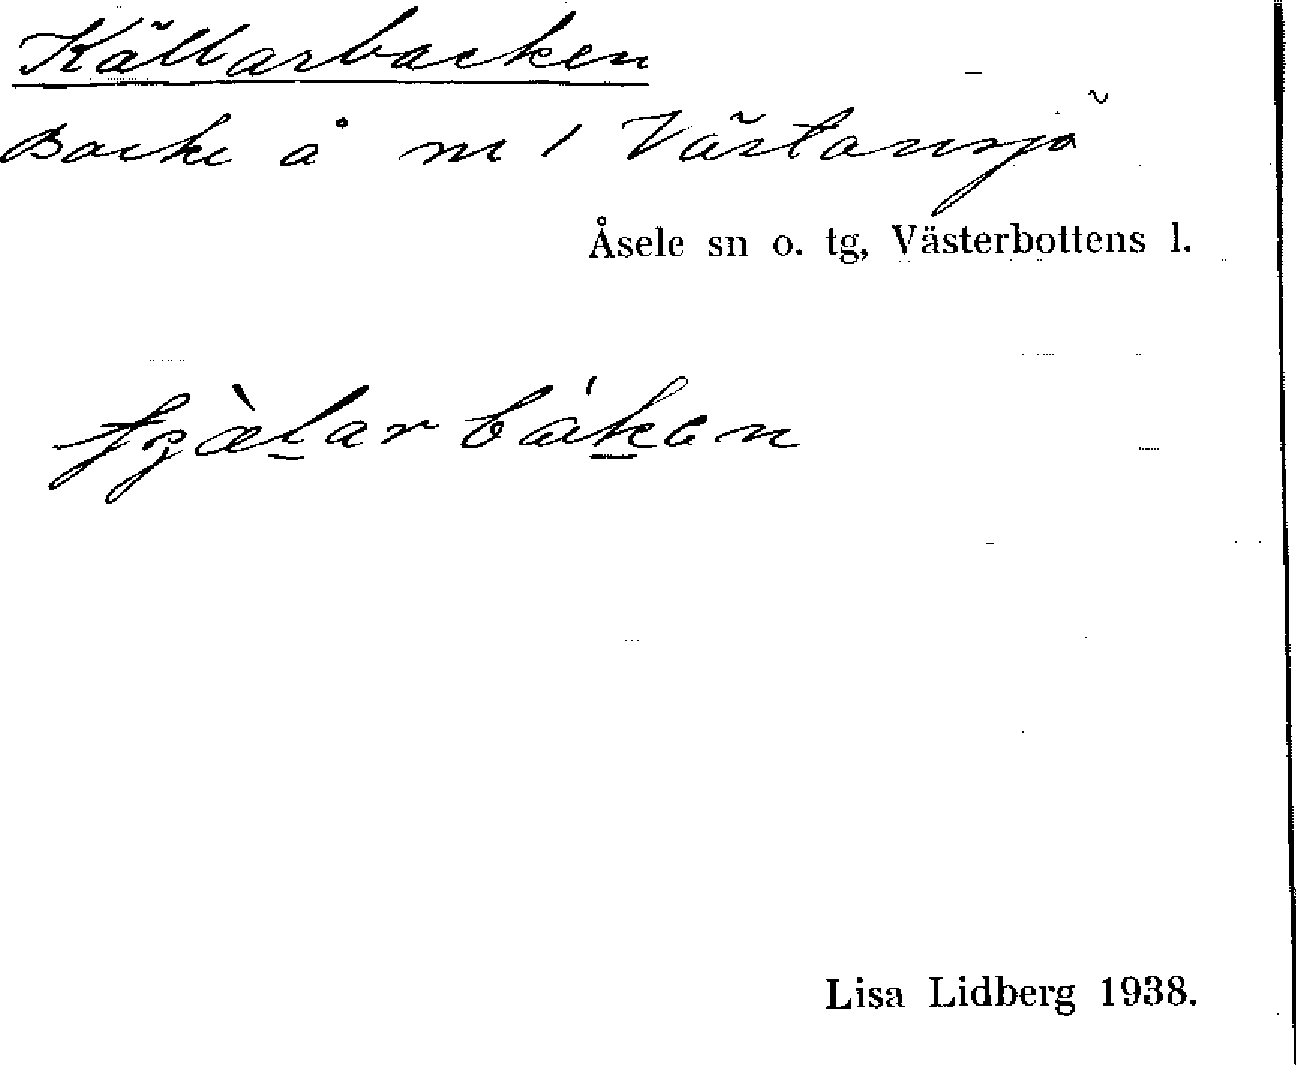 Källarbacken
Backe å nr 1 Västansjö
Åsele sn o. tg, Västerbottens l.
Lisa Lidberg 1938.